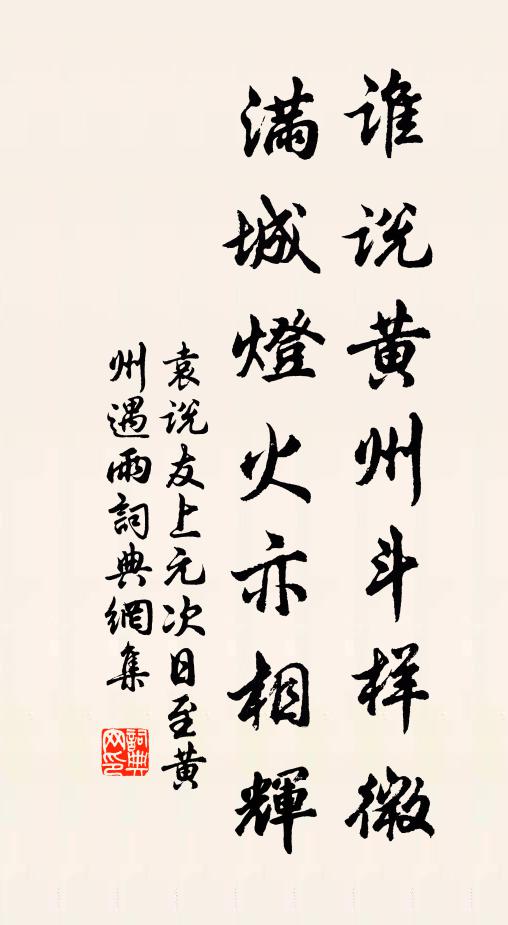 谁说黄州斗样微
满城燈火亦相輝
袁说友上元次日至黄
州遇雨詞典網集
詞典
网印